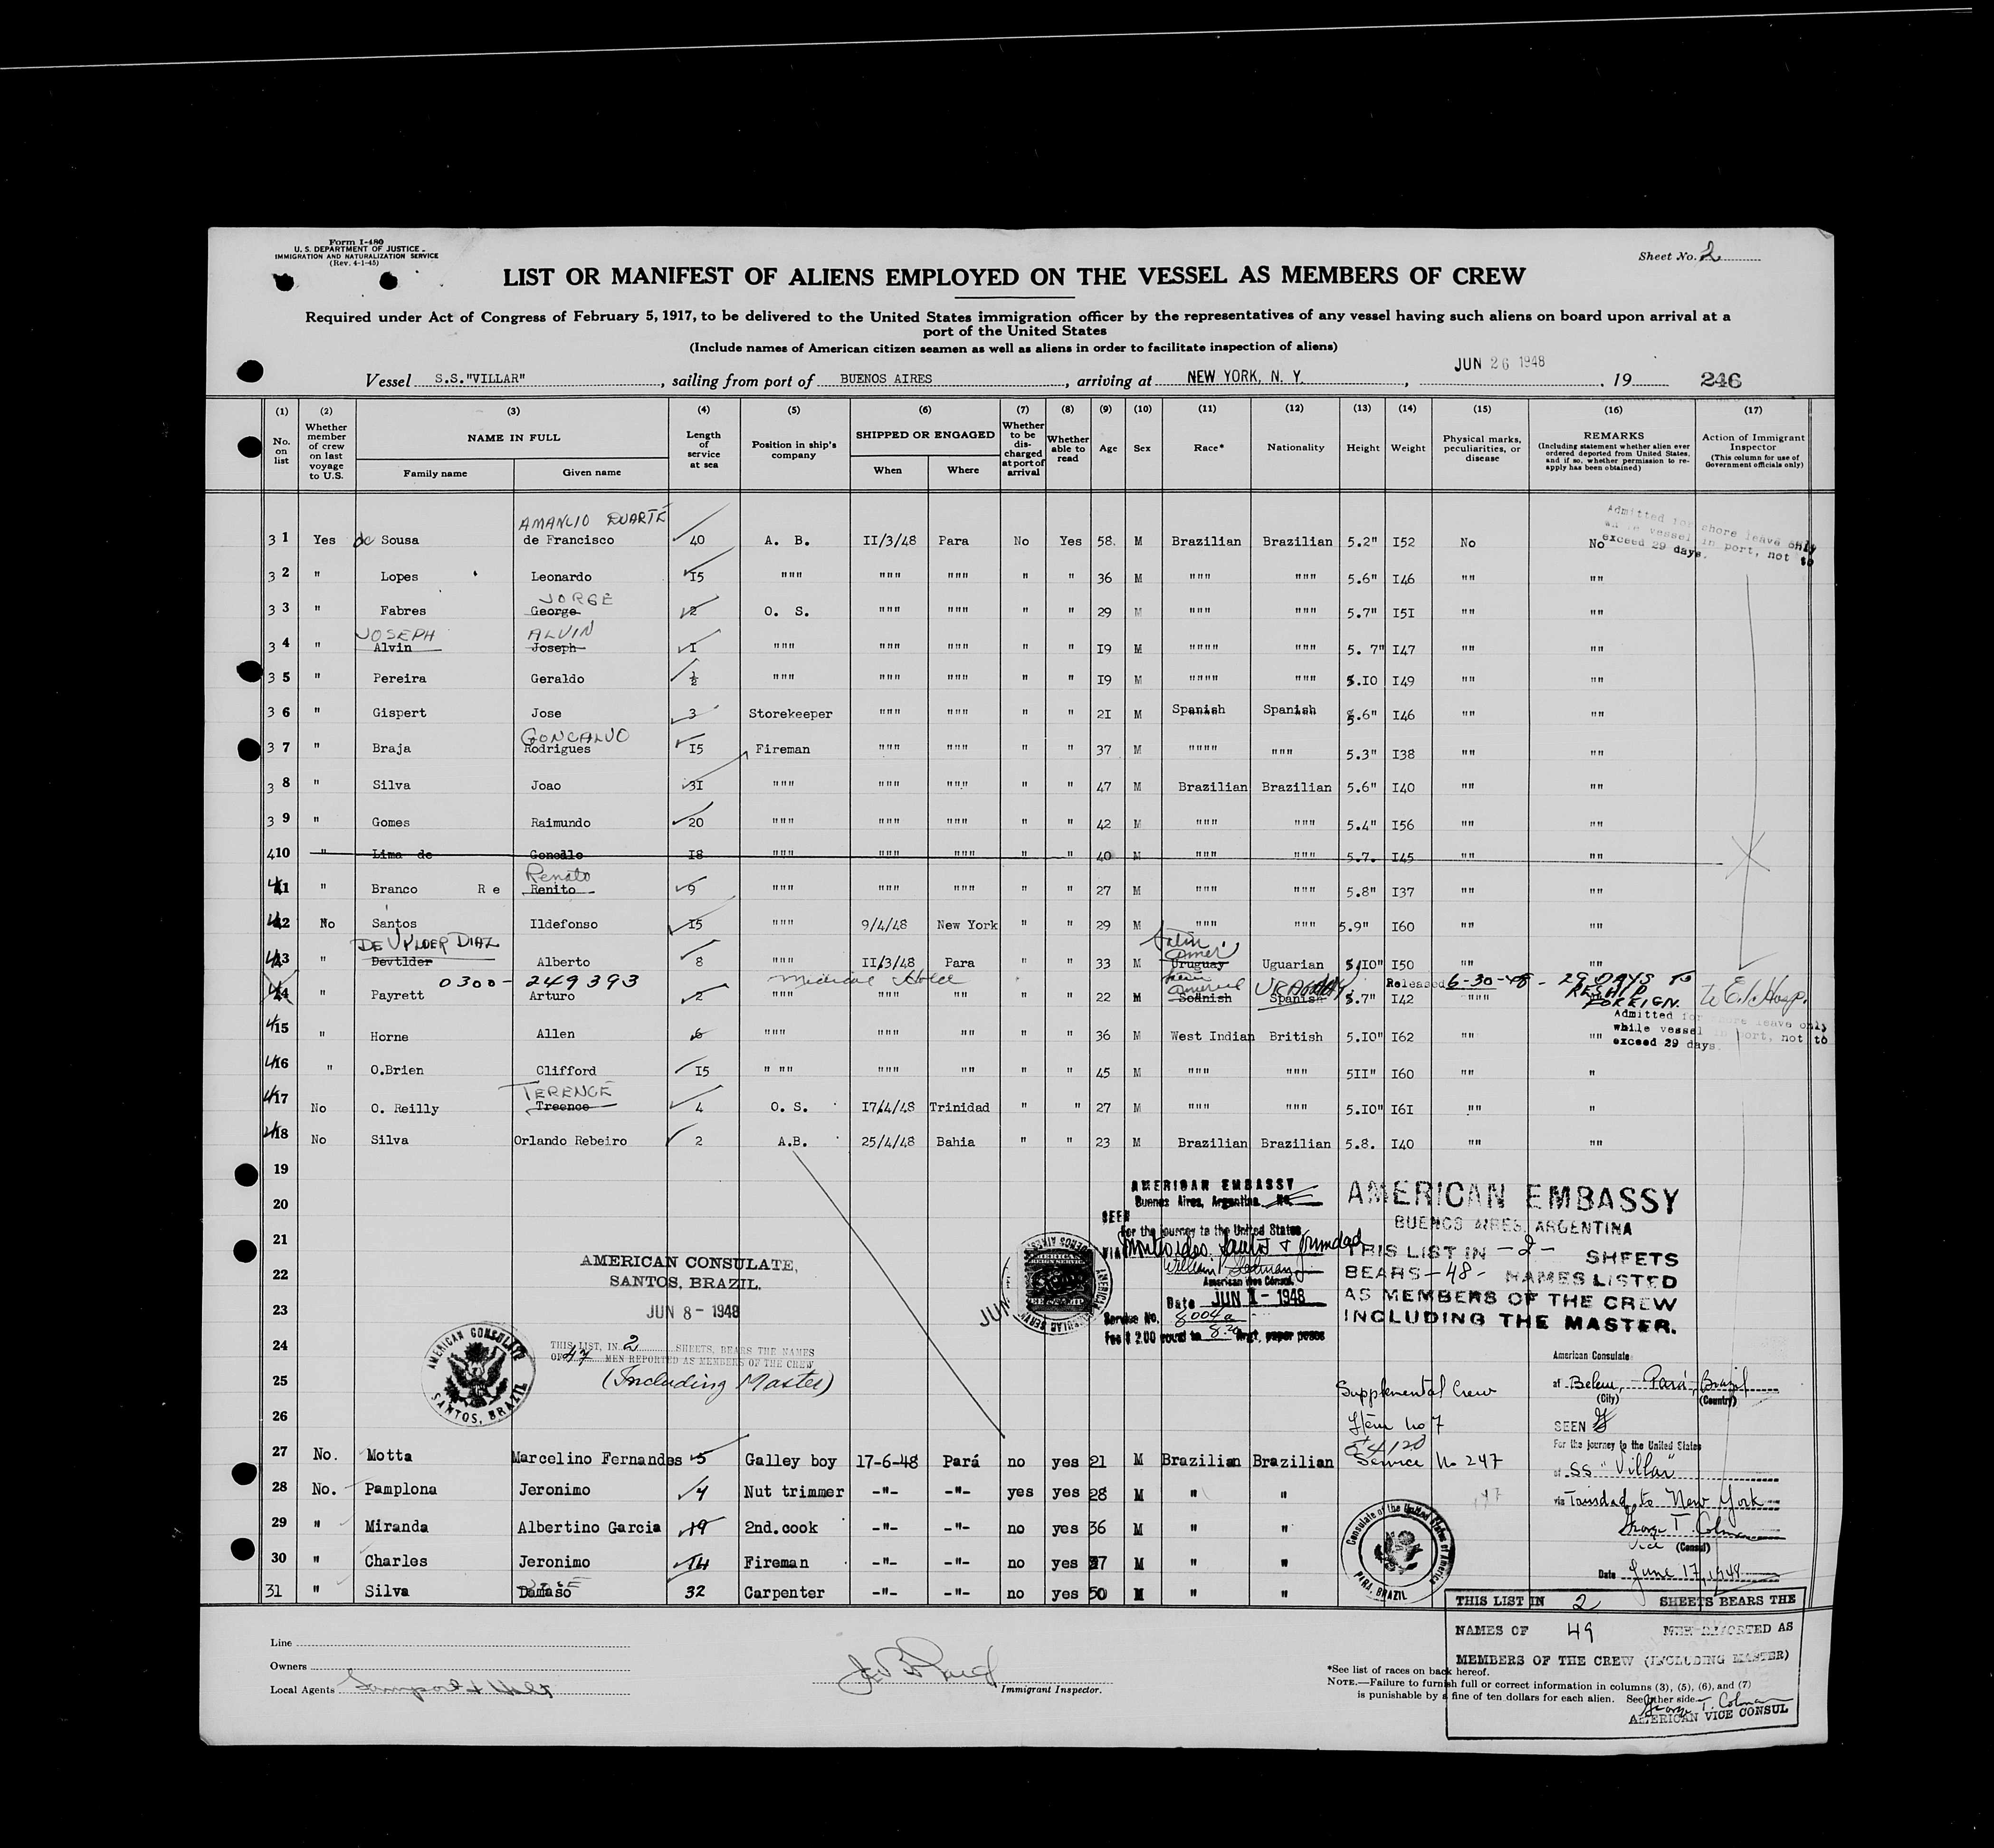 Form I-480
U. S. DEPARTMENT OF JUSTICE
IMMIGRATION AND NATURALIZATION SERVICE
(Rev. 4-1-45)
Sheet No. 2
LIST OR MANIFEST OF ALIENS EMPLOYED ON THE VESSEL AS MEMBERS OF CREW
Required under Act of Congress of February 5, 1917, to be delivered to the United States immigration officer by the representatives of any vessel having such aliens on board upon arrival at a
port of the United States
(Include names of American citizen seamen as well as aliens in order to facilitate inspection of aliens)
Vessel S.S."VILLAR", sailing from port of BUENOS AIRES, arriving at NEW YORK, N. Y., JUN 26 1948, 19 246
(1) (2) (3) (4) (5) (6) (7) (8) (9) (10) (11) (12) (13) (14) (15) (16) (17)
No. on list
Whether member of crew on last voyage to U.S.
NAME IN FULL
Family name Given name
Length of service at sea
Position in ship's company
SHIPPED OR ENGAGED
When Where
Whether to be discharged at port of arrival
Whether able to read
Age
Sex
Race*
Nationality
Height
Weight
Physical marks, peculiarities, or disease
REMARKS
(Including statement whether alien ever ordered deported from United States, and if so, whether permission to reapply has been obtained)
Action of Immigrant Inspector
(This column for use of Government officials only)
AMANCIO DUARTE
31 Yes de Sousa de Francisco 40 A. B. II/3/48 Para No Yes 58. M Brazilian Brazilian 5.2" I52 No No
Admitted for shore leave only
while vessel in port, not to
exceed 29 days.
32 " Lopes Leonardo I5 """ """ """ " " 36 M """ """ 5.6" I46 "" ""
JORGE
33 " Fabres George 2 O. S. """ """ " " 29 M """ """ 5.7" I5I "" ""
JOSEPH ALVIN
34 " Alvin Joseph I """ """ """ " " I9 M """" """ 5. 7" I47 "" ""
35 " Pereira Geraldo ½ """ """ """ " " I9 M """" """ 5.IO I49 "" ""
36 " Gispert Jose 3 Storekeeper """ """ " " 2I M Spanish Spanish 5.6" I46 "" ""
GONCALVO
37 " Braja Rodrigues I5 Fireman """ """ " " 37 M """" """ 5.3" I38 "" ""
38 " Silva Joao 3I """ """ """ " " 47 M Brazilian Brazilian 5.6" I40 "" ""
39 " Gomes Raimundo 20 """ """ """ " " 42 M """ """ 5.4" I56 "" ""
410 " Lima de Goncllo I8 """ """ """ " " 40 M """ """ 5.7. I45 "" ""
Renato
41 " Branco Re Renito 9 """ """ """ " " 27 M """ """ 5.8" I37 "" ""
42 No Santos Ildefonso I5 """ 9/4/48 New York " " 29 M """ """ 5.9" I60 "" ""
DE VYLDER DIAZ Latin Amer
43 " Devtlder Alberto 8 """ II/3/48 Para " " 33 M Uruguay Uguarian 5,IO" I50 "" ""
0300-249393 Medical Hold Latin American URAGUAY Released 6-30-48 - 29 DAYS TO RESHIP FOREIGN.
44 " Payrett Arturo 2 """ """ "" " " 22 M Spanish Spanish 5.7" I42 """" to E.I. Hosp.
Admitted for shore leave only
while vessel in port, not to
exceed 29 days.
415 " Horne Allen 6 """ """ "" " " 36 M West Indian British 5.IO" I62 "" ""
416 " O.Brien Clifford I5 " "" """ "" " " 45 M """ """ 5II" I60 "" "
TERENCE
417 No O. Reilly Treence 4 O. S. I7/4/48 Trinidad " " 27 M """ """ 5.IO" I6I "" "
418 No Silva Orlando Rebeiro 2 A.B. 25/4/48 Bahia " " 23 M Brazilian Brazilian 5.8. I40 "" ""
19
20
21
22
23
24
25
26
AMERICAN CONSULATE,
SANTOS, BRAZIL.
JUN 8 - 1948
THIS LIST, IN 2 SHEETS, BEARS THE NAMES
OF 47 MEN REPORTED AS MEMBERS OF THE CREW
(Including Master)
AMERICAN CONSULATE
SANTOS, BRAZIL
JUN
AMERICAN EMBASSY
Buenos Aires, Argentina
SEEN
For the journey to the United States
VIA Montevideo Santos & Trinidad
American Vice Consul.
Date JUN 1 - 1948
Service No. 8004a
Fee $ 2.00 equal to Argt. paper pesos
AMERICAN EMBASSY
BUENOS AIRES, ARGENTINA
THIS LIST IN -2- SHEETS
BEARS -48- NAMES LISTED
AS MEMBERS OF THE CREW
INCLUDING THE MASTER.
Supplemental Crew
Item No 7
Service No 247
American Consulate
at Belem, Pará, Brazil
(City) (Country)
SEEN
For the journey to the United States
of SS "Villar"
via Trinidad to New York
George T. Colman
Vice (Consul)
Date June 17, 1948
Consulate of the United States of America
PARA, BRAZIL
27 No. Motta Marcelino Fernandes 5 Galley boy 17-6-48 Pará no yes 21 M Brazilian Brazilian
28 No. Pamplona Jeronimo 4 Nut trimmer -"- -"- yes yes 28 M " "
29 " Miranda Albertino Garcia 19 2nd.cook -"- -"- no yes 36 M " "
30 " Charles Jeronimo 14 Fireman -"- -"- no yes 37 M " "
31 " Silva Damaso 32 Carpenter -"- -"- no yes 50 M " "
THIS LIST IN 2 SHEETS BEARS THE
NAMES OF 49 MEN REPORTED AS
MEMBERS OF THE CREW (INCLUDING MASTER)
George T. Colman
AMERICAN VICE CONSUL
Line
Owners
Local Agents Lamport & Holt
Immigrant Inspector.
*See list of races on back hereof.
NOTE.—Failure to furnish full or correct information in columns (3), (5), (6), and (7)
is punishable by a fine of ten dollars for each alien. See other side.